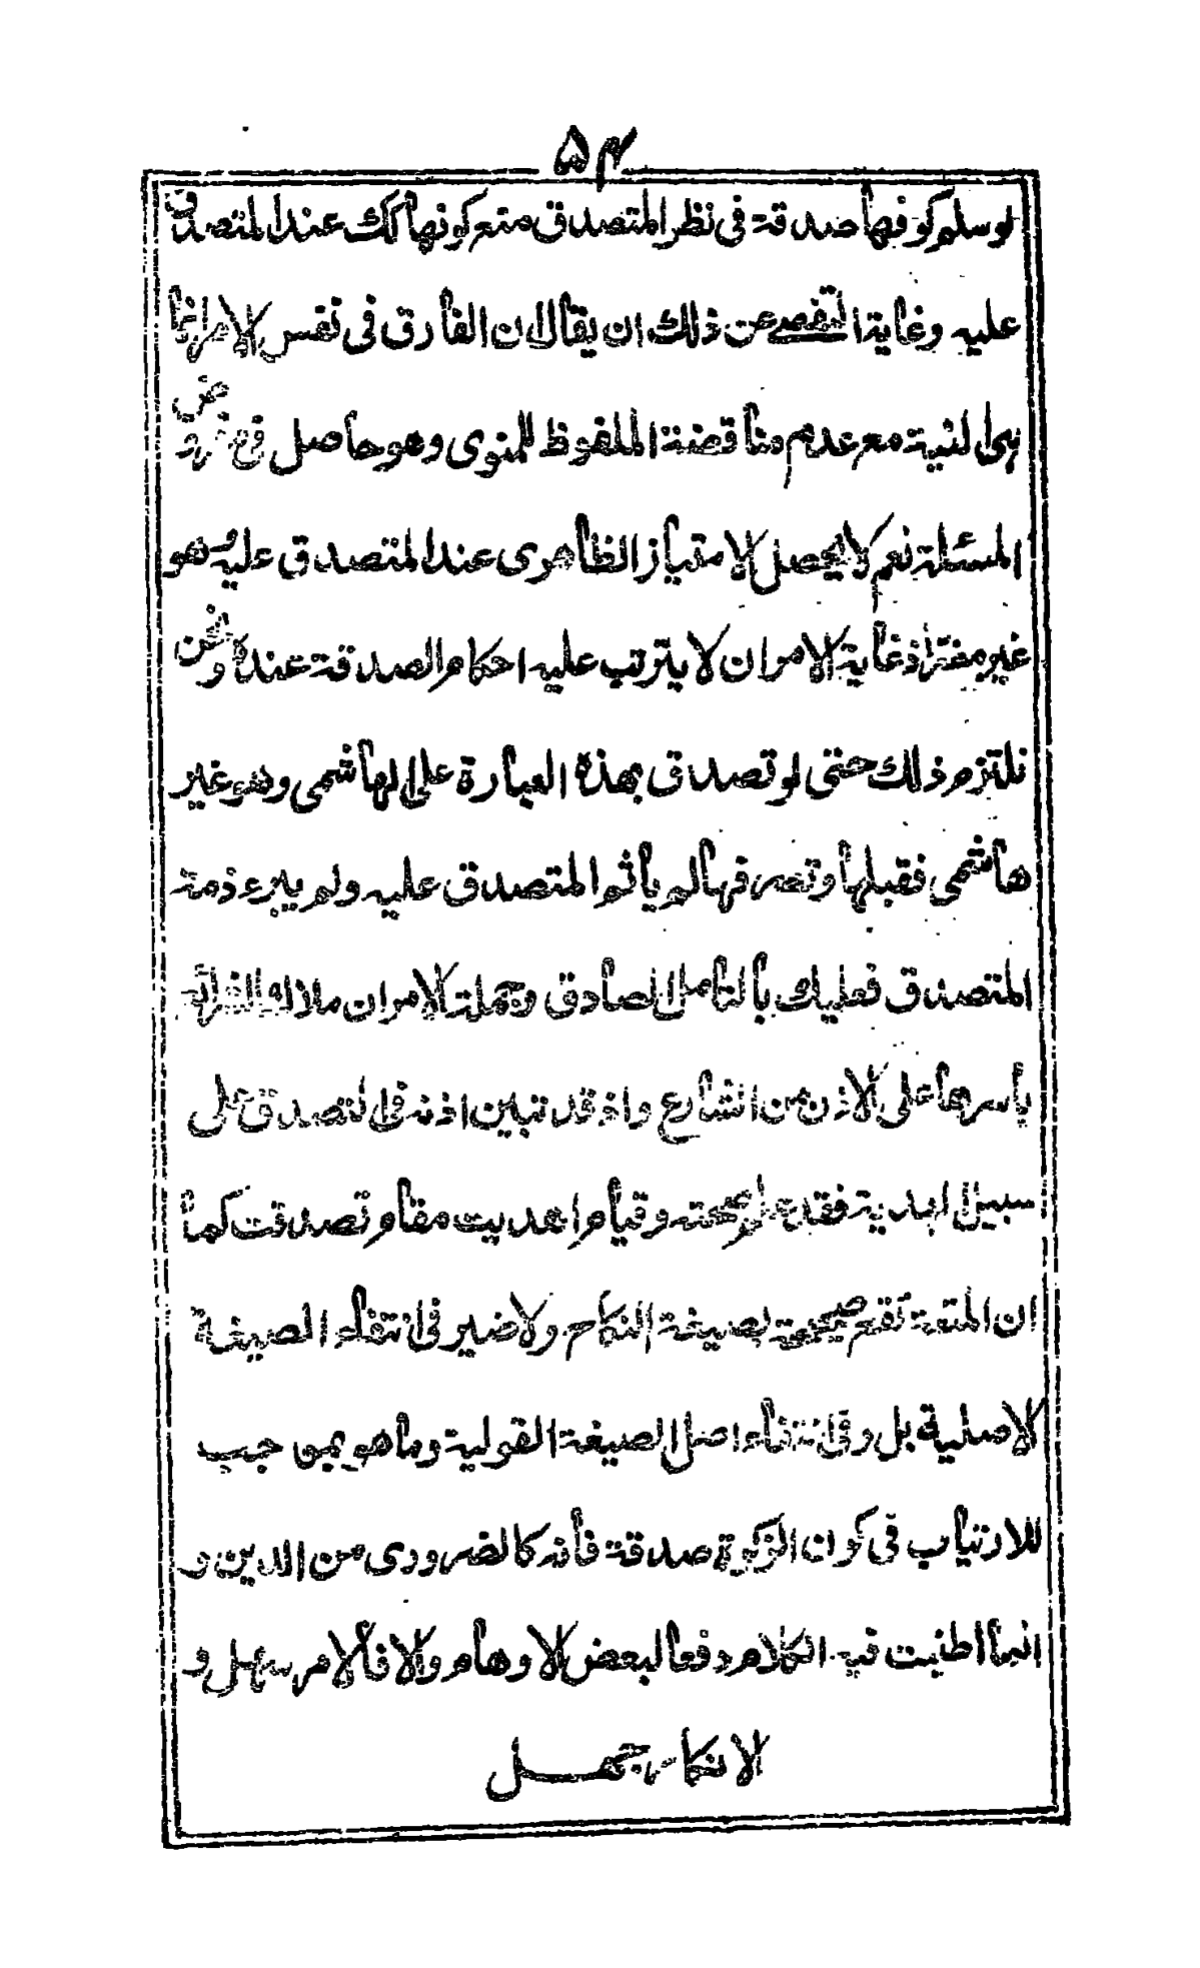 ۵۴
لو سلم كونها صدقة فى نظر المتصدق منع كونها كك عند المتصدق
عليه وغاية التفصى عن ذلك ان يقال ان الفارق فى نفس الامر انما
هى النية مع عدم مناقضة الملفوظ للمنوى وهو حاصل فى مفروض
المسئلة نعم لا يحصل الامتياز الظاهرى عند المتصدق عليه وهو
غير مضر اذ غاية الامر ان لا يترتب عليه احكام الصدقة عنده ونحن
نلتزم ذلك حتى لو تصدق بهذه العبارة على الهاشمى وهو غير
هاشمى فقبلها وتصرفها لم يأثم المتصدق عليه ولم يبرء ذمة
المتصدق فعليك بالتامل الصادق وجملة الامر ان ملاك
باسرها على الاذن من الشارع واذ قد تبين اذنه فى التصدق على
سبيل الهدية فقد علم صحته وقيام اهديت مقام تصدقت كما
ان المتعة تقع صحيحة بصيغة النكاح ولا ضير فى انتفاء الصيغة
الاصلية بل وفى انتفاء اصل الصيغة القولية وما هو بموجب
للارتياب فى كون الزكوة صدقة فانه كالضرورى من الدين و
انما اطنبت فيه الكلام دفعا لبعض الاوهام والا فالامر سهل و
الانكار جهل